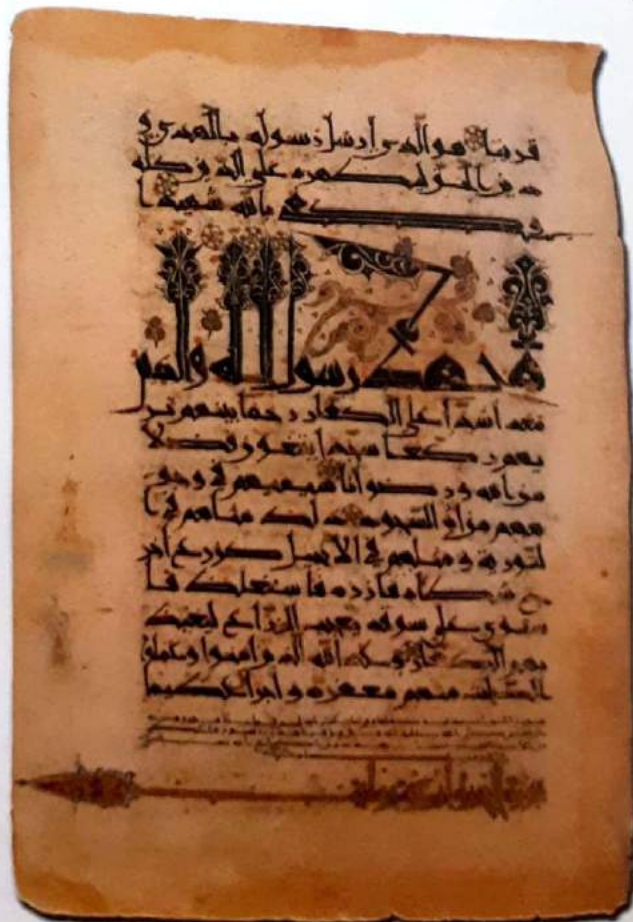 قريبا هو الذي ارسل رسوله بالهدى و
دين الحق ليظهره على الدين كله
وكفى بالله شهيدا
محمد رسول الله والذين
معه اشداء على الكفار رحما بينهم تر
يهم ركعا سجدا يبتغون فضلا
من الله ورضوانا سيميهم في وجو
ههم من اثر السجود ذلك مثلهم في ا
لتورية ومثلهم في الانجيل كزرع اخر
ج شطاه فازره فاستغلظ فا
ستوى على سوقه يعجب الزراع ليغيظ
بهم الكفار وعد الله الذين امنوا وعملوا
الصلحت منهم مغفرة واجرا عظيما